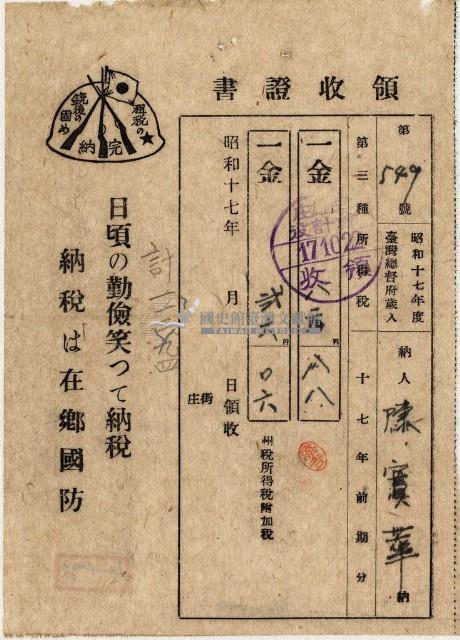 領收證書
第549號
昭和十七年度
臺灣總督府歲入
納人 陳寶華 納
第三種所得稅 十七年前期分
一金
八八
一金
貳 〇六
州稅所得稅附加稅
昭和十七年 月 日領收
街
庄
17.10.22
領收
計
租稅の完納
銃後の固め
日頃の勤儉笑つて納稅
納稅は在鄉國防
國史館臺灣文獻館
TAIWAN HISTORICA